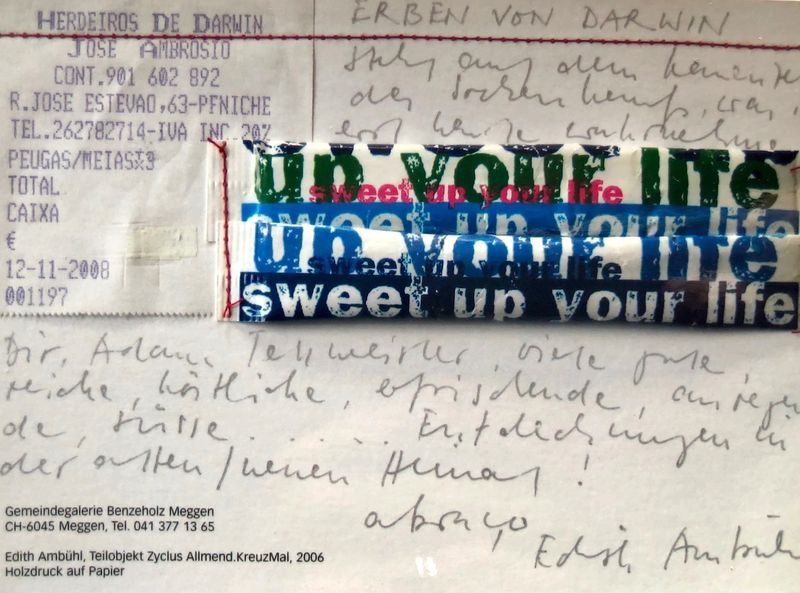 HERDEIROS DE DARWIN
JOSE AMBROSIO
CONT.901 602 892
R.JOSE ESTEVAO,63-PFNICHE
TEL.262782714-IVA INC.20%
PEUGAS/MEIAS
TOTAL
CAIXA
€
12-11-2008
001197
ERBEN VON DARWIN
steht auf dem
der Sockenkauf, was
erst heute wahrnehme
up your life
sweet up your life
sweet up your life
up your life
sweet up your life
sweet up your life
Dir, Adam Tellmeister, viele gute,
reiche, köstliche, erfrischende, anregen
de, süsse ...... Entdeckungen in
der alten/neuen Heimat!
abraço
Edith Ambühl
Gemeindegalerie Benzeholz Meggen
CH-6045 Meggen, Tel. 041 377 13 65
Edith Ambühl, Teilobjekt Zyclus Allmend.KreuzMal, 2006
Holzdruck auf Papier